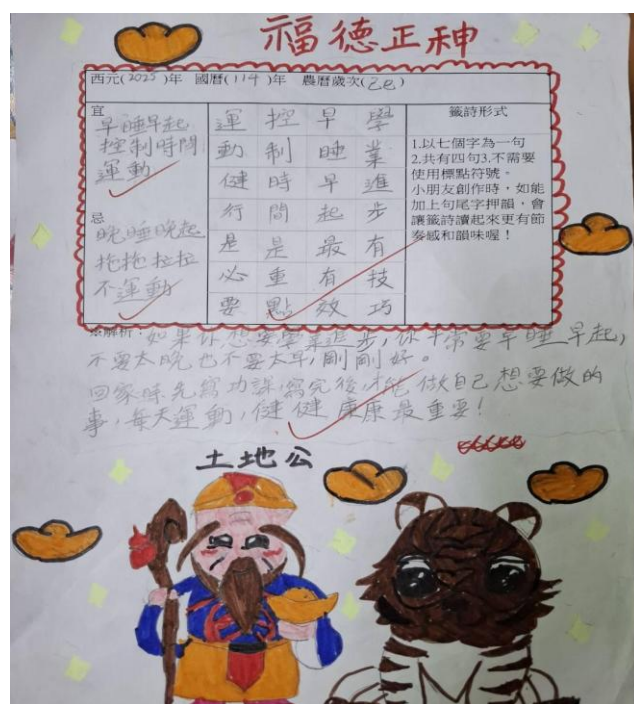 福德正神
西元(2025)年 國曆(114)年 農曆歲次(乙巳)
宜
早睡早起
控制時間
運動
忌
晚睡晚起
拖拖拉拉
不運動
學業進步有技巧
早睡早起最有效
控制時間是重點
運動健行是必要
籤詩形式
1.以七個字為一句
2.共有四句3.不需要
使用標點符號。
小朋友創作時,如能
加上句尾字押韻,會
讓籤詩讀起來更有節
奏感和韻味喔!
※解析:如果你想要學業進步,你平常要早睡早起,
不要太晚也不要太早,剛剛好。
回家時先寫功課,寫完後,才能做自己想要做的
事,每天運動,健健康康最重要!
土地公